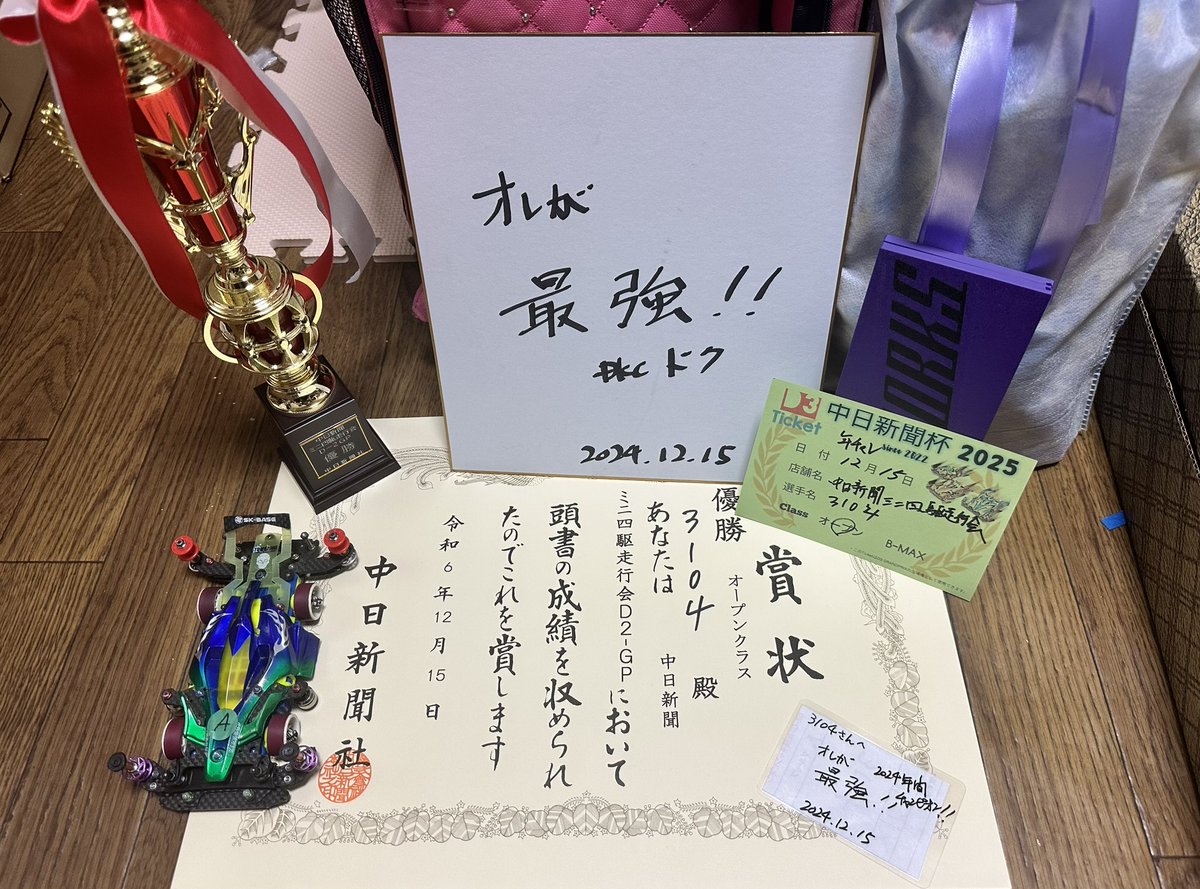 オレが
最強!!
DKC ドク
2024.12.15
ORKS
優勝
D3
Ticket
中日新聞杯 2025
年チャレ Since 2022
日付 12月15日
店舗名 中日新聞ミニ四駆走行会
選手名 3104
Class オープン
B-MAX
賞状
オープンクラス
優勝
3104 殿
あなたは 中日新聞
ミニ四駆走行会D2-GPにおいて
頭書の成績を収められ
たのでこれを賞します
令和6年12月15日
中日新聞社
SK-BASE
A
3104さんへ
オレが 2024年間
最強!! チャンピオン!!
2024.12.15